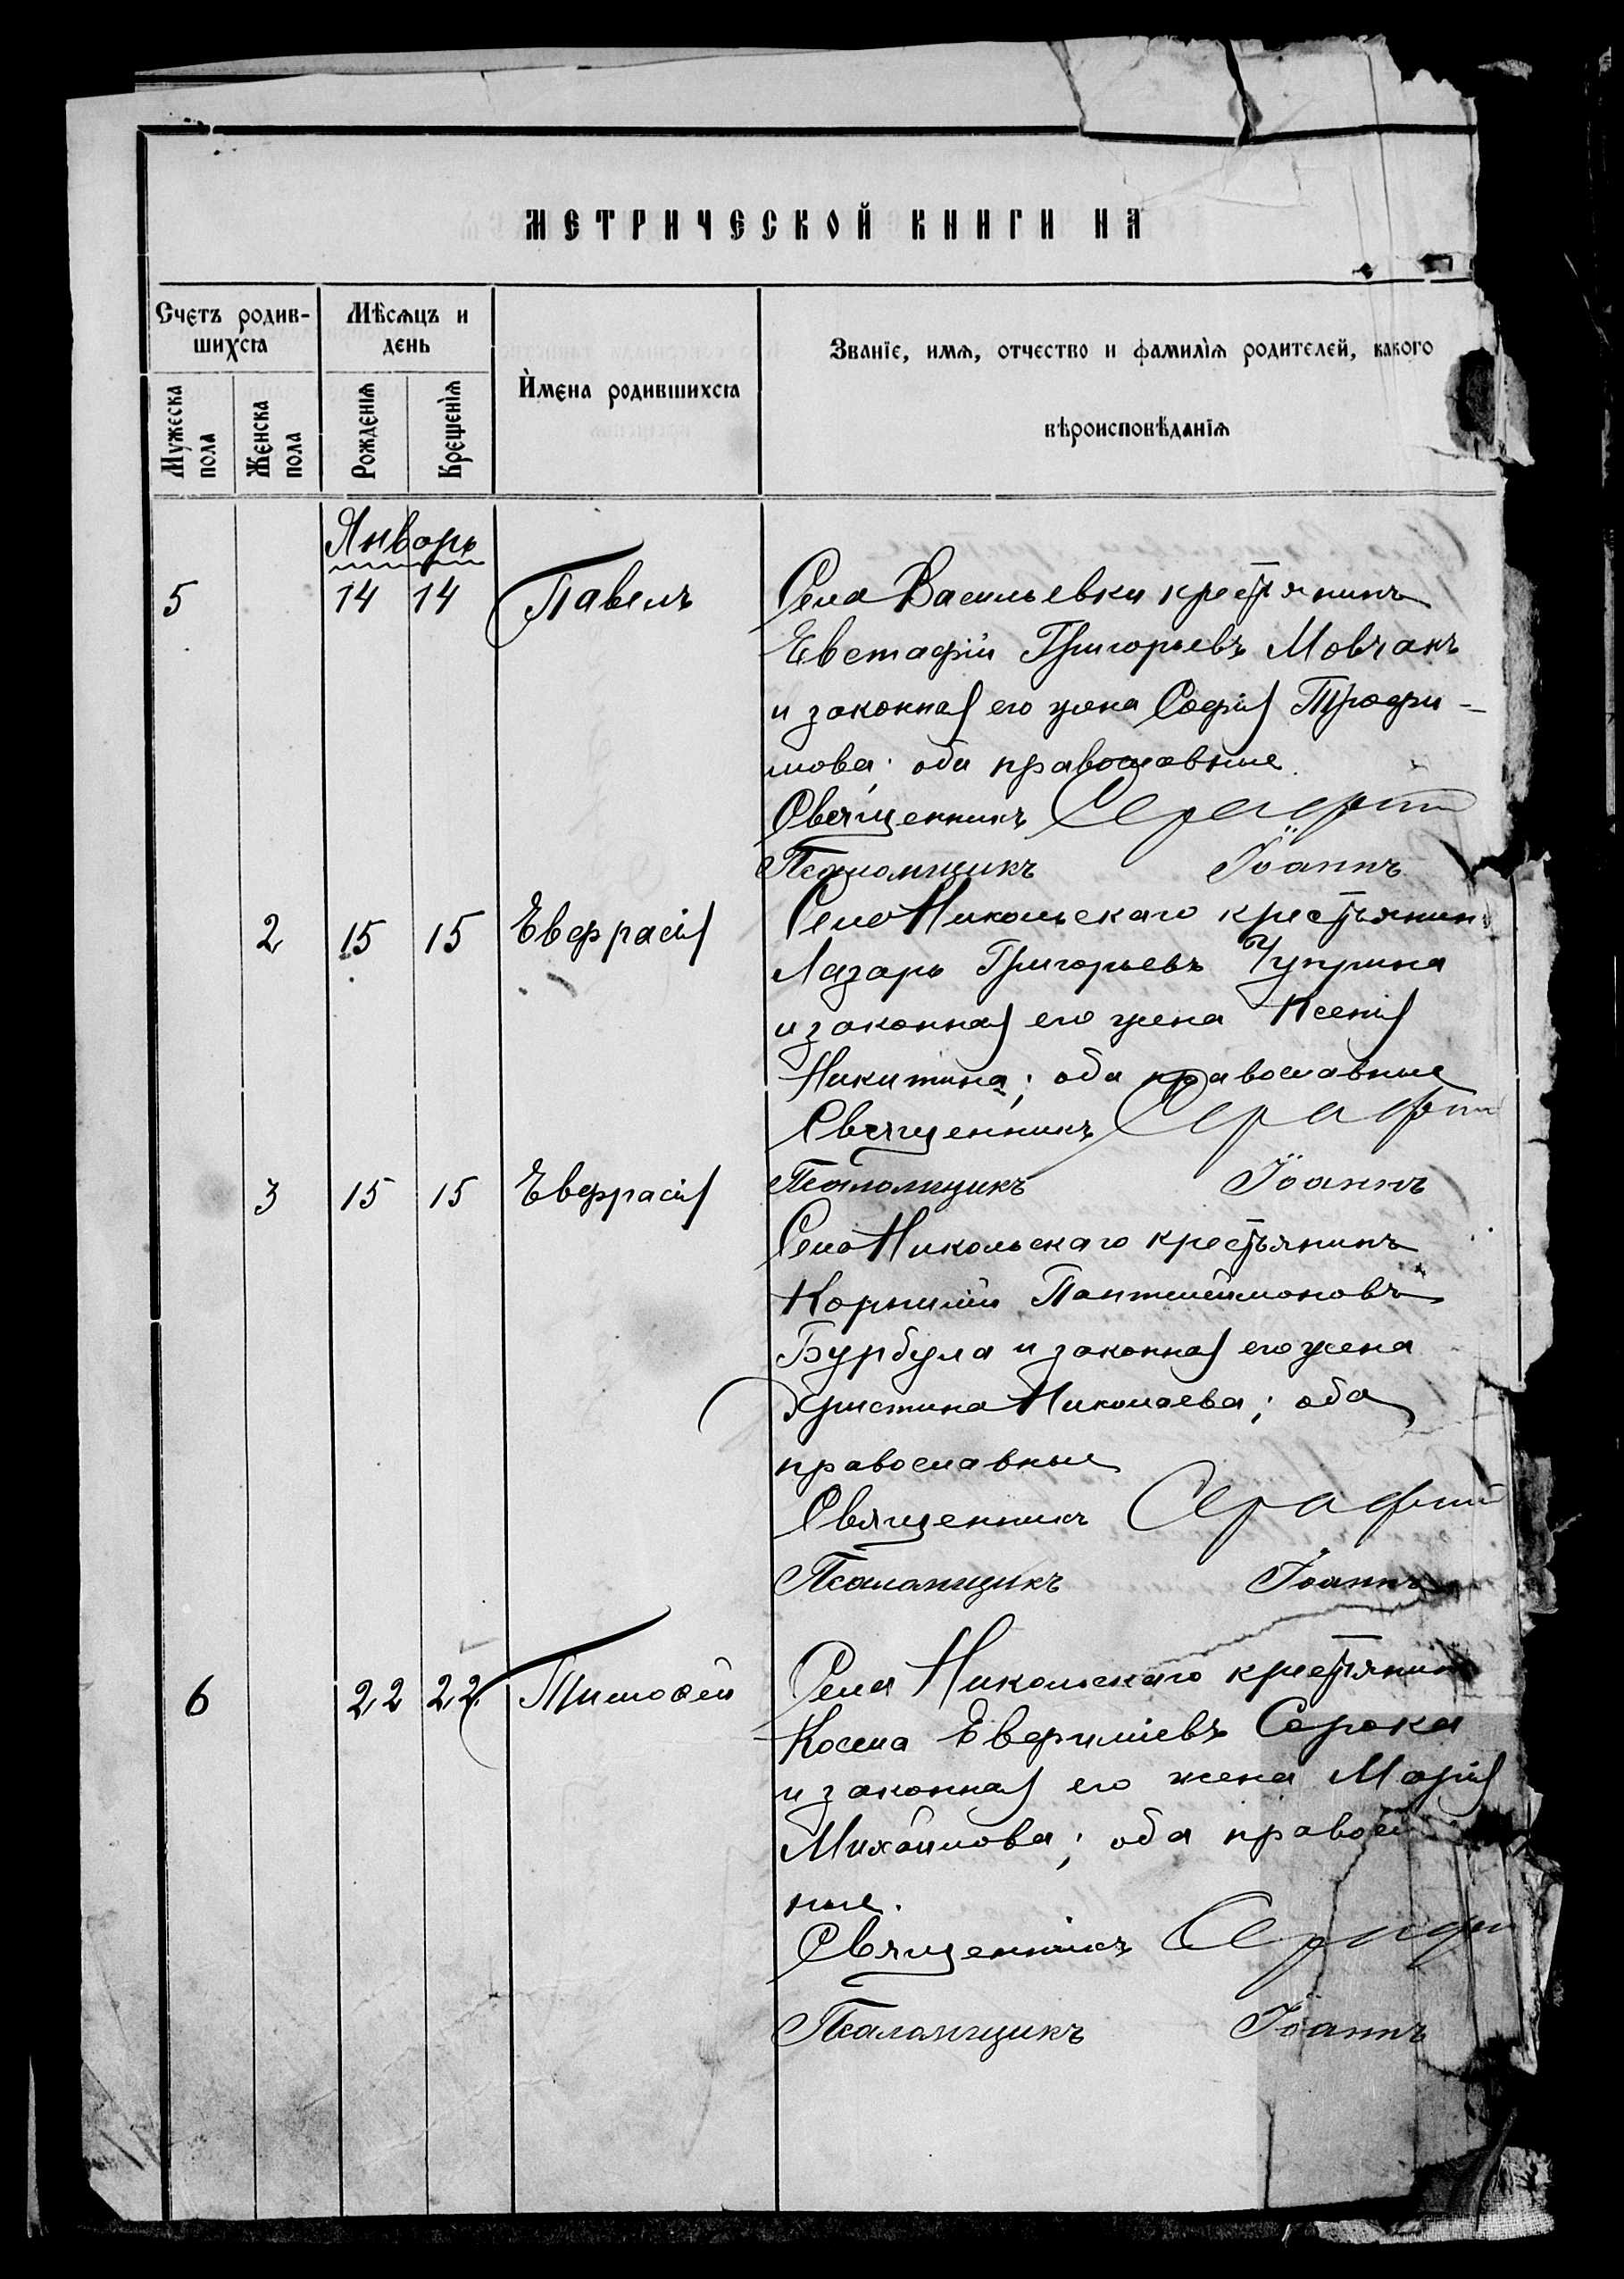 МЕТРИЧЕСКОЙ КНИГИ НА
Счетъ родив-
шихсѧ
Мѣсѧцъ и
день
Имена родившихсѧ
Званїе, имѧ, отчество и фамилїѧ родителей, какого
вѣроисповѣданїѧ
Мужеска
пола
Женска
пола
Рожденїѧ
Крещенїѧ
Январь
5 14 14 Павелъ Села Васильевки крестьянинъ
Евстафій Григорьевъ Мовчанъ
и законная его жена Софія Трофи-
мова; оба православные
Священникъ Серафим
Псаломщикъ Іоаннъ
2 15 15 Евфрасія Села Никольскаго крестьянин
Лазарь Григорьевъ Чуприна
и законная его жена Ксенія
Никитина; оба православные
Священникъ Серафим
Псаломщикъ Іоаннъ
3 15 15 Евфрасія
Села Никольскаго крестьянинъ
Корнилій Пантелеймоновъ
Бурбула и законная его жена
Христина Николаева; оба
православные
Священникъ Серафим
Псаломщикъ Іоаннъ
6 22 22 Тимоѳей Села Никольскаго крестьянин
Косма Евфиміевъ Сорока
и законная его жена Марія
Михайлова; оба правосл
ные.
Священникъ Сераф
Псаломщикъ Іоаннъ